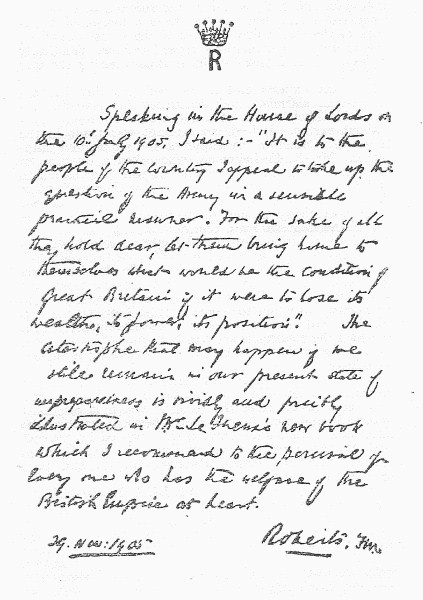 R
Speaking in the House of Lords on
the 10th July 1905, I said :- "It is to the
people of the country I appeal to take up the
question of the Army in a sensible
practical manner. For the sake of all
they hold dear, let them bring home to
themselves what would be the condition of
Great Britain if it were to lose its
wealth, its power, its position". The
catastrophe that may happen if we
still remain in our present state of
unpreparedness is vividly and forcibly
illustrated in Mr. Le Queux's new book
which I recommend to the perusal of
every one who has the welfare of the
British Empire at heart.
29. Nov: 1905
Roberts, F.M.